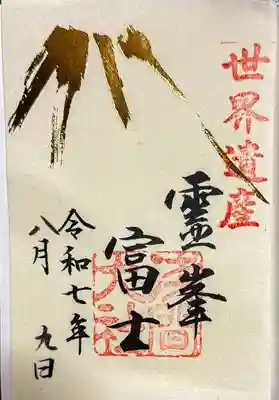 世界遺産
霊峯
富士
令和七年
八月 九日